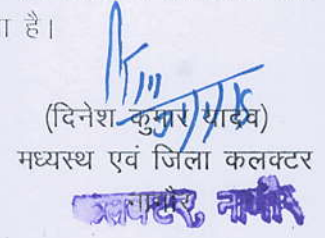 ा है।
(दिनेश कुमार यादव)
मध्यस्थ एवं जिला कलक्टर
नागौर
कलक्टर, नागौर